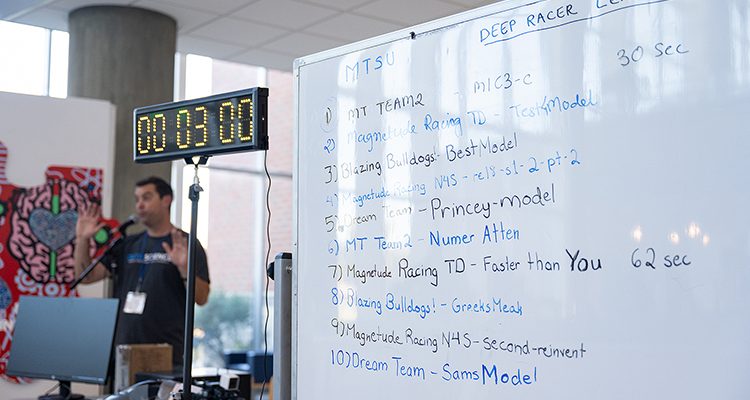 DEEP RACER
MTSU
30 Sec
1) MT TEAM2 MIC3-C
2) Magnetude Racing TD - Test4Model
3) Blazing Bulldogs! - BestModel
4) Magnetude Racing N4S - rel8-s1-2-pt-2
5) Dream Team - Princey-model
6) MT Team2 - Numer Atten
7) Magnetude Racing TD - Faster than You 62 sec
8) Blazing Bulldogs! - GreeksMeak
9) Magnetude Racing N4S - second-reinvent
10) Dream Team - SamsModel
00:03:00